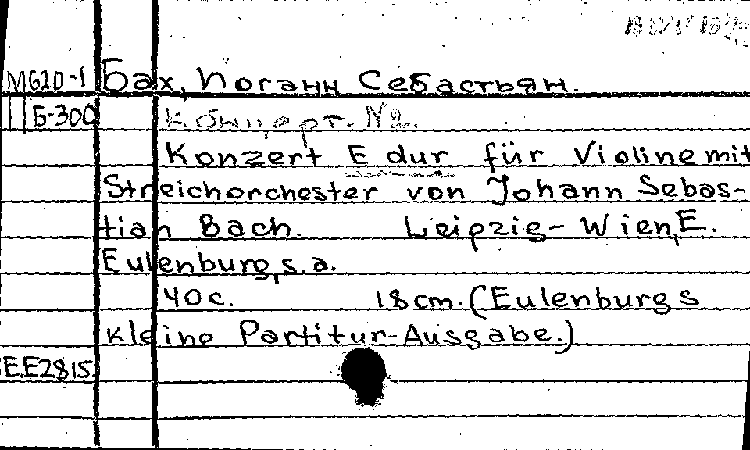 М620-1 Бах, Иоганн Себастьян.
Б-300 Концерт. №2.
Konzert E dur für Violine mit
Streichorchester von Johann Sebas-
tian Bach. Leipzig-Wien, E.
Eulenburg, s.a.
40 с. 18 cm. (Eulenburgs
kleine Partitur-Ausgabe.)
E.E2815